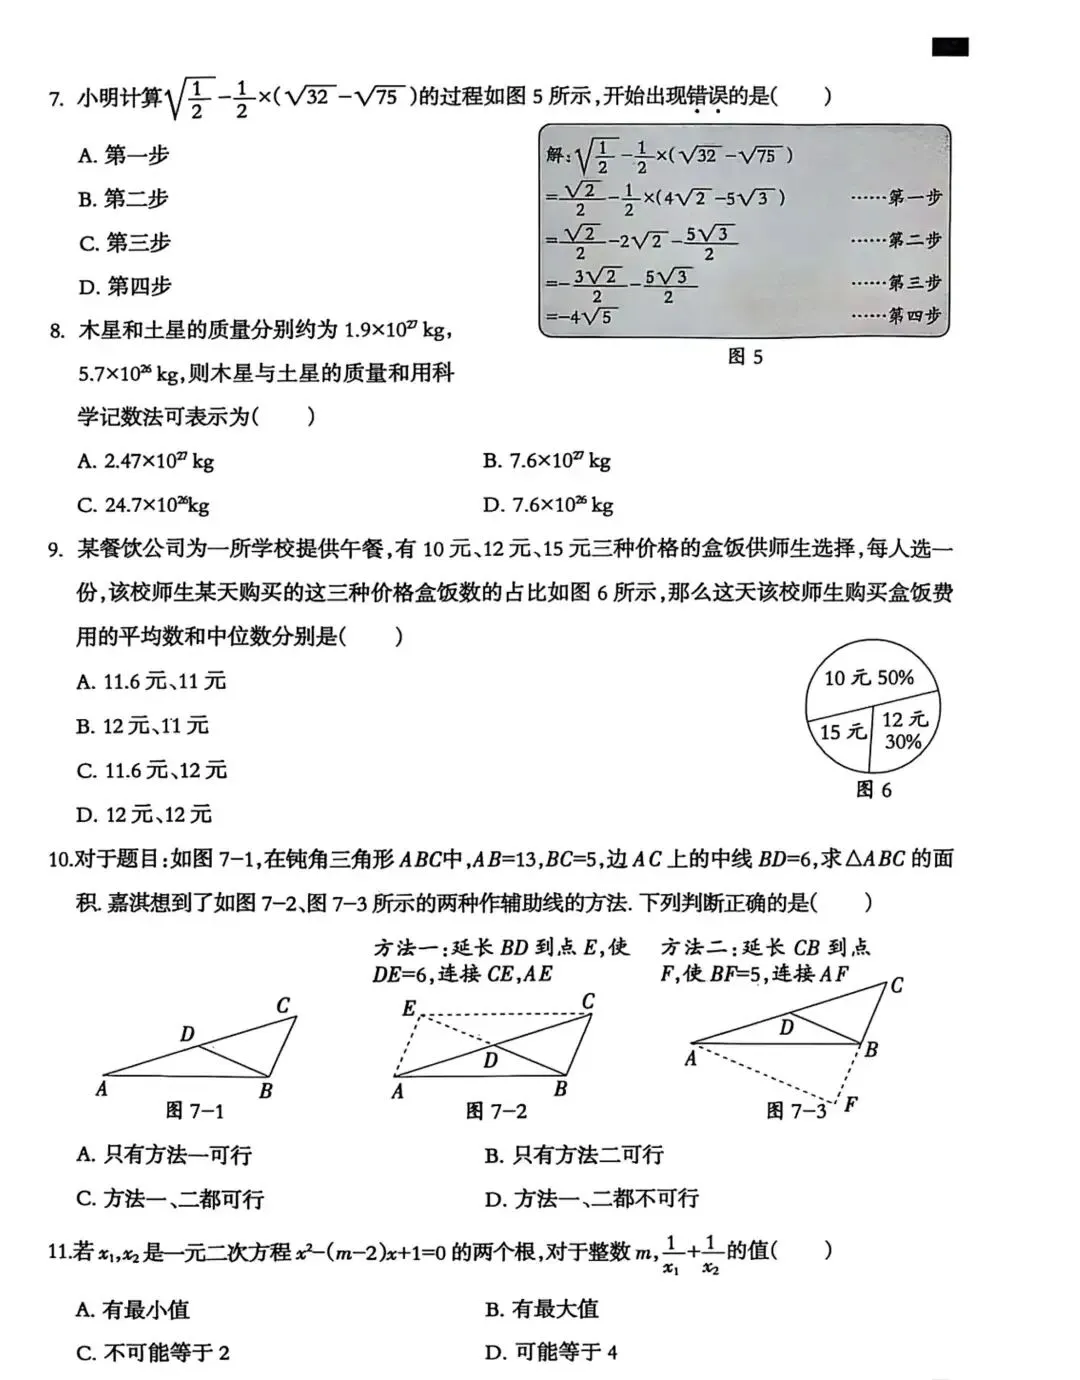 7. 小明计算√(1/2)-1/2×(√32-√75)的过程如图5所示,开始出现错误的是(  )
A. 第一步
B. 第二步
C. 第三步
D. 第四步
解:√(1/2)-1/2×(√32-√75)
=√2/2-1/2×(4√2-5√3) ……第一步
=√2/2-2√2-5√3/2 ……第二步
=-3√2/2-5√3/2 ……第三步
=-4√5 ……第四步
图5
8. 木星和土星的质量分别约为1.9×10²⁷ kg,
5.7×10²⁶ kg,则木星与土星的质量和用科
学记数法可表示为(  )
A. 2.47×10²⁷ kg B. 7.6×10²⁷ kg
C. 24.7×10²⁶kg D. 7.6×10²⁶ kg
9. 某餐饮公司为一所学校提供午餐,有10元、12元、15元三种价格的盒饭供师生选择,每人选一
份,该校师生某天购买的这三种价格盒饭数的占比如图6所示,那么这天该校师生购买盒饭费
用的平均数和中位数分别是(  )
A. 11.6元、11元
B. 12元、11元
C. 11.6元、12元
D. 12元、12元
10元 50%
15元
12元
30%
图6
10.对于题目:如图7-1,在钝角三角形ABC中,AB=13,BC=5,边AC上的中线BD=6,求△ABC的面
积. 嘉淇想到了如图7-2、图7-3所示的两种作辅助线的方法. 下列判断正确的是(  )
方法一:延长BD到点E,使
DE=6,连接CE,AE
方法二:延长CB到点
F,使BF=5,连接AF
C
D
A
B
图7-1
E
C
D
A
B
图7-2
C
D
A
B
F
图7-3
A. 只有方法一可行 B. 只有方法二可行
C. 方法一、二都可行 D. 方法一、二都不可行
11.若x₁,x₂是一元二次方程x²-(m-2)x+1=0的两个根,对于整数m,1/x₁+1/x₂的值(  )
A. 有最小值 B. 有最大值
C. 不可能等于2 D. 可能等于4